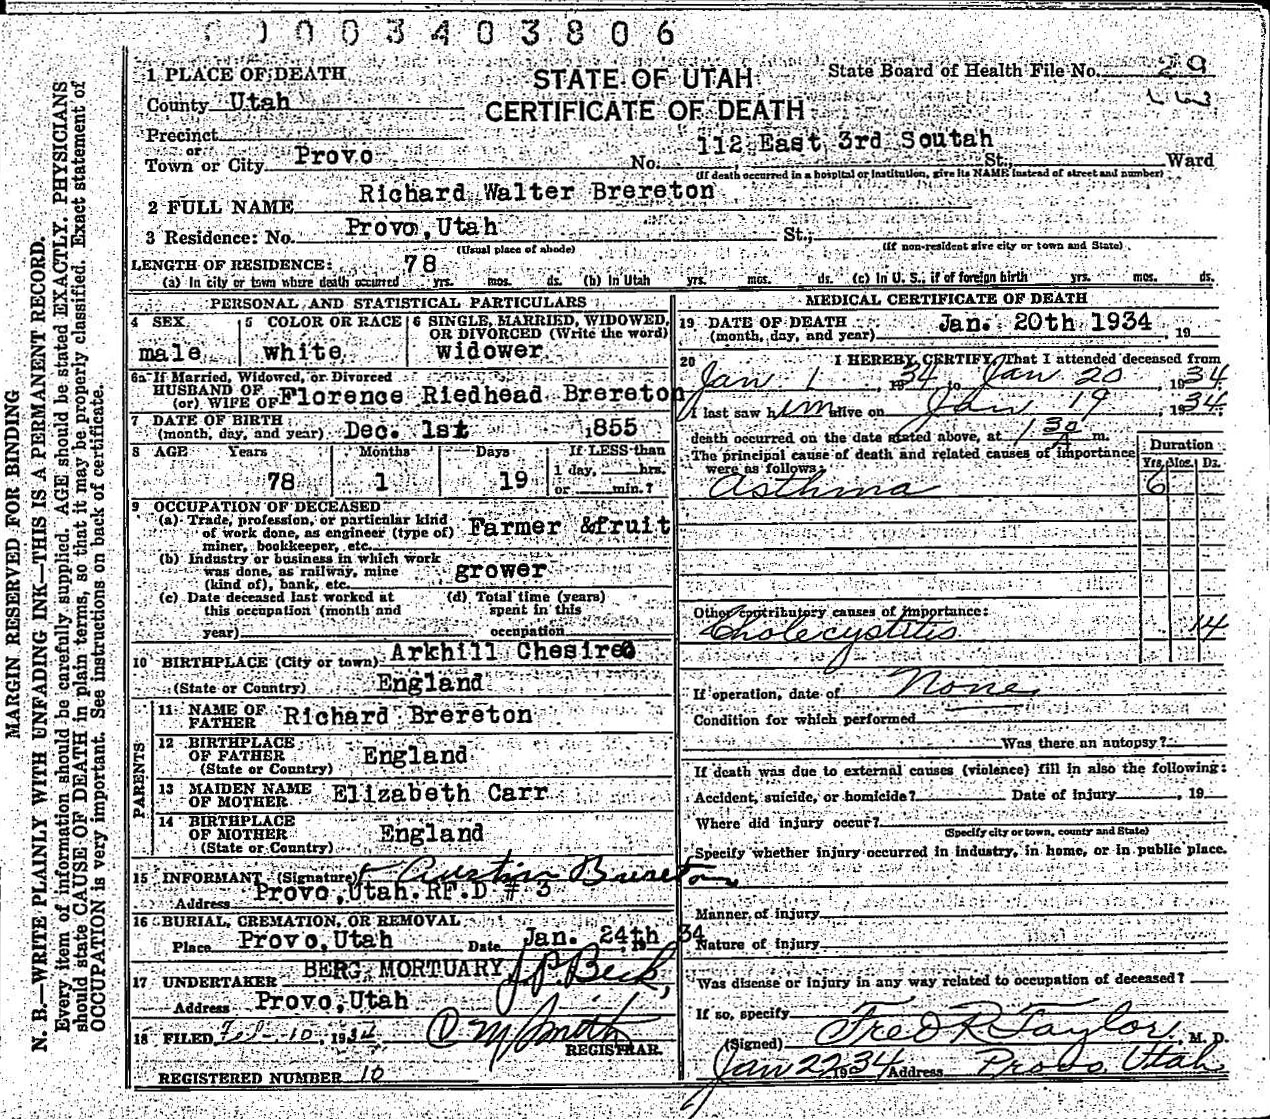 0003403806
MARGIN RESERVED FOR BINDING
N. B.—WRITE PLAINLY WITH UNFADING INK—THIS IS A PERMANENT RECORD.
Every item of information should be carefully supplied. AGE should be stated EXACTLY. PHYSICIANS
should state CAUSE OF DEATH in plain terms, so that it may be properly classified. Exact statement of
OCCUPATION is very important. See instructions on back of certificate.
STATE OF UTAH
CERTIFICATE OF DEATH
State Board of Health File No. 29
1 PLACE OF DEATH
County Utah
Precinct
or
Town or City Provo No. 112 East 3rd Soutah St., Ward
(If death occurred in a hospital or institution, give its NAME instead of street and number)
2 FULL NAME Richard Walter Brereton
3 Residence: No. Provo, Utah St.,
(Usual place of abode) (If non-resident give city or town and State)
LENGTH OF RESIDENCE: 78
(a) In city or town where death occurred yrs. mos. ds. (b) In Utah yrs. mos. ds. (c) In U. S., if of foreign birth yrs. mos. ds.
PERSONAL AND STATISTICAL PARTICULARS
4 SEX male
5 COLOR OR RACE white
6 SINGLE, MARRIED, WIDOWED, OR DIVORCED (Write the word) widower
6a If Married, Widowed, or Divorced
HUSBAND OF
(or) WIFE OF Florence Riedhead Brereton
7 DATE OF BIRTH
(month, day, and year) Dec. 1st 1855
8 AGE Years Months Days If LESS than
1 day, hrs.
78 1 19 or min.?
9 OCCUPATION OF DECEASED
(a) Trade, profession, or particular kind
of work done, as engineer (type of)
miner, bookkeeper, etc. Farmer &fruit
(b) Industry or business in which work
was done, as railway, mine
(kind of), bank, etc. grower
(c) Date deceased last worked at
this occupation (month and
year)
(d) Total time (years)
spent in this
occupation
10 BIRTHPLACE (City or town) Arkhill Chesire
(State or Country) England
PARENTS
11 NAME OF
FATHER Richard Brereton
12 BIRTHPLACE
OF FATHER England
(State or Country)
13 MAIDEN NAME
OF MOTHER Elizabeth Carr
14 BIRTHPLACE
OF MOTHER England
(State or Country)
15 INFORMANT (Signature) Austin Brereton
Address Provo, Utah. RF.D # 3
16 BURIAL, CREMATION, OR REMOVAL
Place Provo, Utah Date Jan. 24th 19 34
17 UNDERTAKER BERG MORTUARY J.P. Beck,
Address Provo, Utah
18 FILED Feb-10, 1934
REGISTRAR
REGISTERED NUMBER 10
MEDICAL CERTIFICATE OF DEATH
19 DATE OF DEATH
(month, day, and year) Jan. 20th 1934, 19
20 I HEREBY CERTIFY, That I attended deceased from
Jan 1, 1934 to Jan 20, 1934
I last saw him alive on Jan 19, 1934
death occurred on the date stated above, at 1 30 A m.
The principal cause of death and related causes of importance
were as follows:
Duration
Yrs. Mos. Ds.
Asthma 6
Other contributory causes of importance:
Cholecystitis 14
If operation, date of None
Condition for which performed
Was there an autopsy?
If death was due to external causes (violence) fill in also the following:
Accident, suicide, or homicide? Date of injury, 19
Where did injury occur?
(Specify city or town, county and State)
Specify whether injury occurred in industry, in home, or in public place.
Manner of injury
Nature of injury
Was disease or injury in any way related to occupation of deceased?
If so, specify
(Signed) Fred R Taylor, M. D.
Jan 22 1934 Address Provo Utah